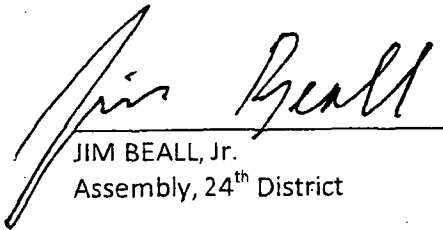 Jim Beall
JIM BEALL, Jr.
Assembly, 24th District